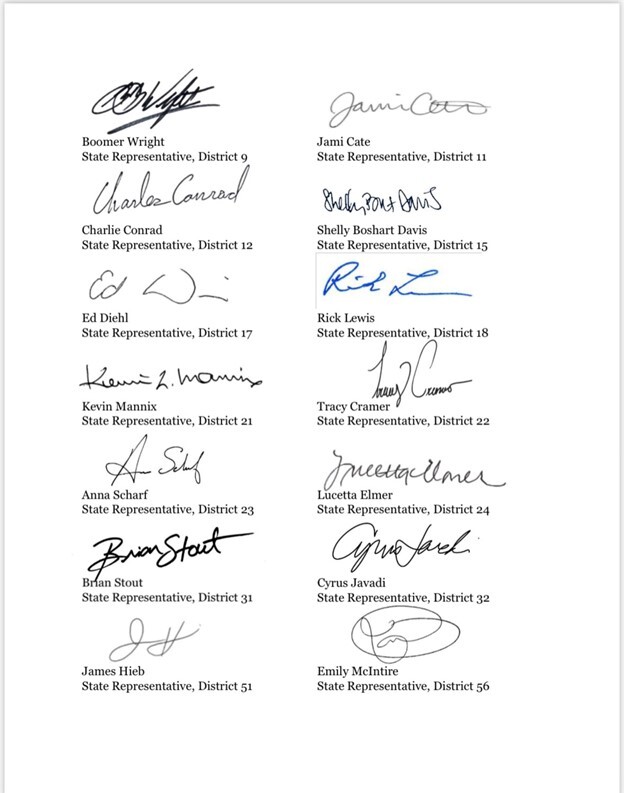 Boomer Wright
State Representative, District 9
Jami Cate
Jami Cate
State Representative, District 11
Charles Conrad
Charlie Conrad
State Representative, District 12
Shelly Boshart Davis
State Representative, District 15
Ed Diehl
State Representative, District 17
Rick Lewis
State Representative, District 18
Kevin L. Mannix
Kevin Mannix
State Representative, District 21
Tracy Cramer
Tracy Cramer
State Representative, District 22
Anna Scharf
State Representative, District 23
Lucetta Elmer
Lucetta Elmer
State Representative, District 24
Brian Stout
Brian Stout
State Representative, District 31
Cyrus Javadi
State Representative, District 32
James Hieb
State Representative, District 51
Emily McIntire
State Representative, District 56